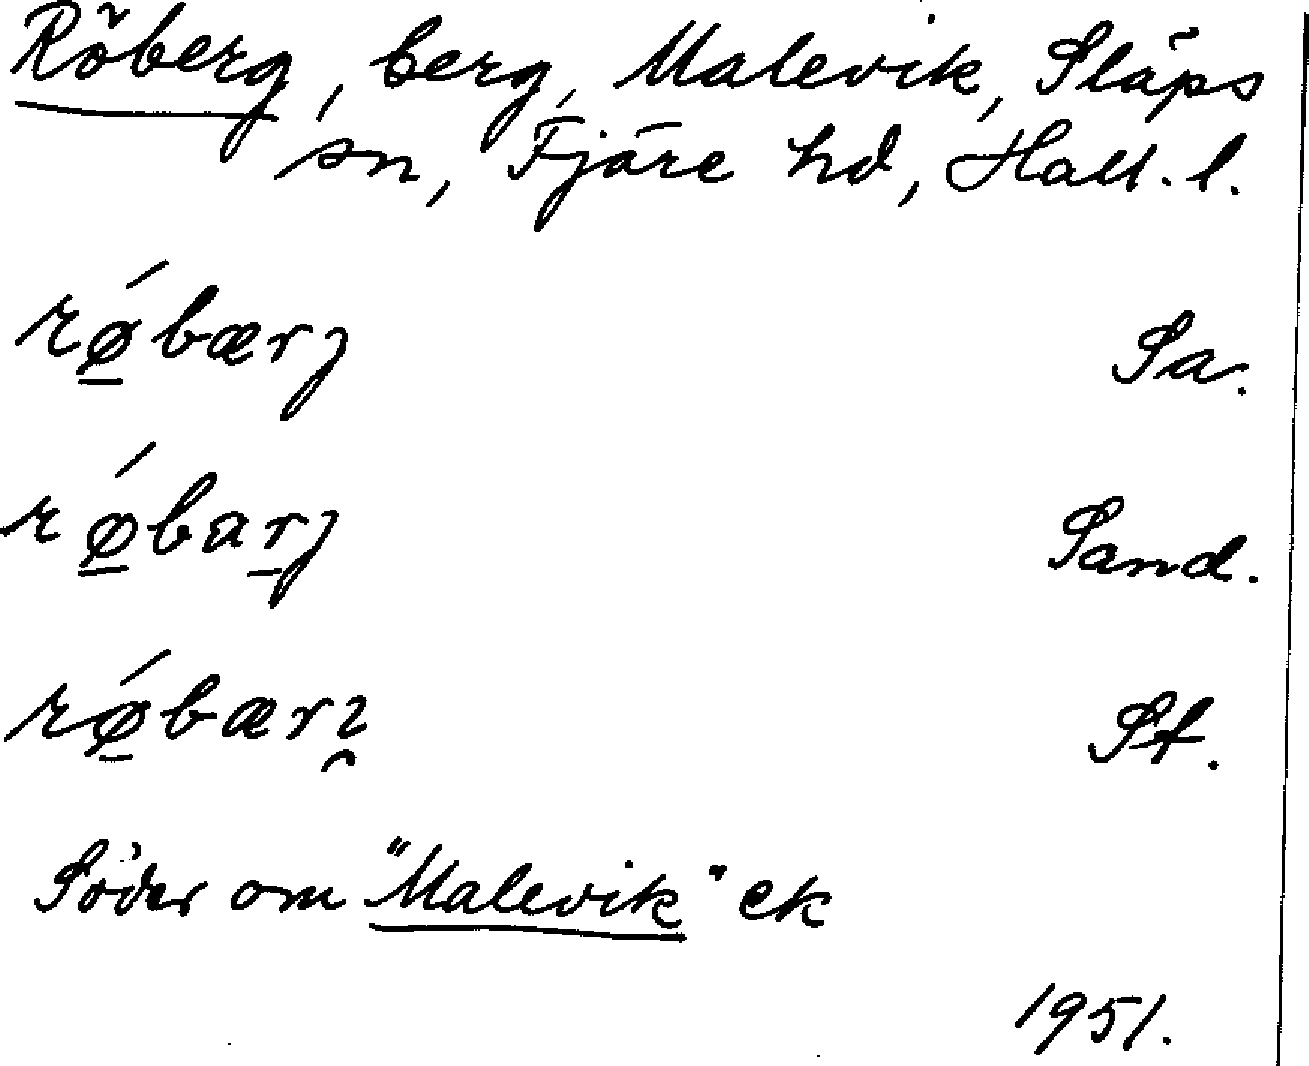 Röberg, berg, Malevik, Släps
sn, Fjäre hd, Hall. l.
rǿ̲bærȷ Sa.
rǿ̲bar̲ȷ Sand.
rǿ̲bærꝛ̯ St.
Söder om "Malevik" ek
1951.